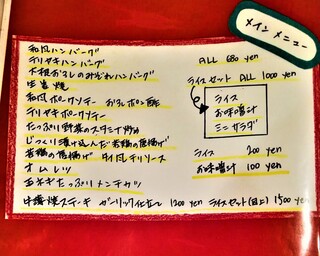 メインメニュー
和風ハンバーグ
テリヤキハンバーグ
大根おろしのみぞれハンバーグ
生姜焼
和風ポークソテー おろしポン酢
テリヤキポークソテー
たっぷり野菜のスタミナ炒め
じっくり漬け込んだ若鶏の唐揚げ
若鶏の唐揚げ タイ風チリソース
オムレツ
玉ネギたっぷりメンチカツ
ALL 680 yen
ライスセット ALL 1000 yen
ライス
お味噌汁
ミニサラダ
ライス 200 yen
お味噌汁 100 yen
ステーキ ガーリック仕立て 1200 yen ライスセット(同上) 1500 yen